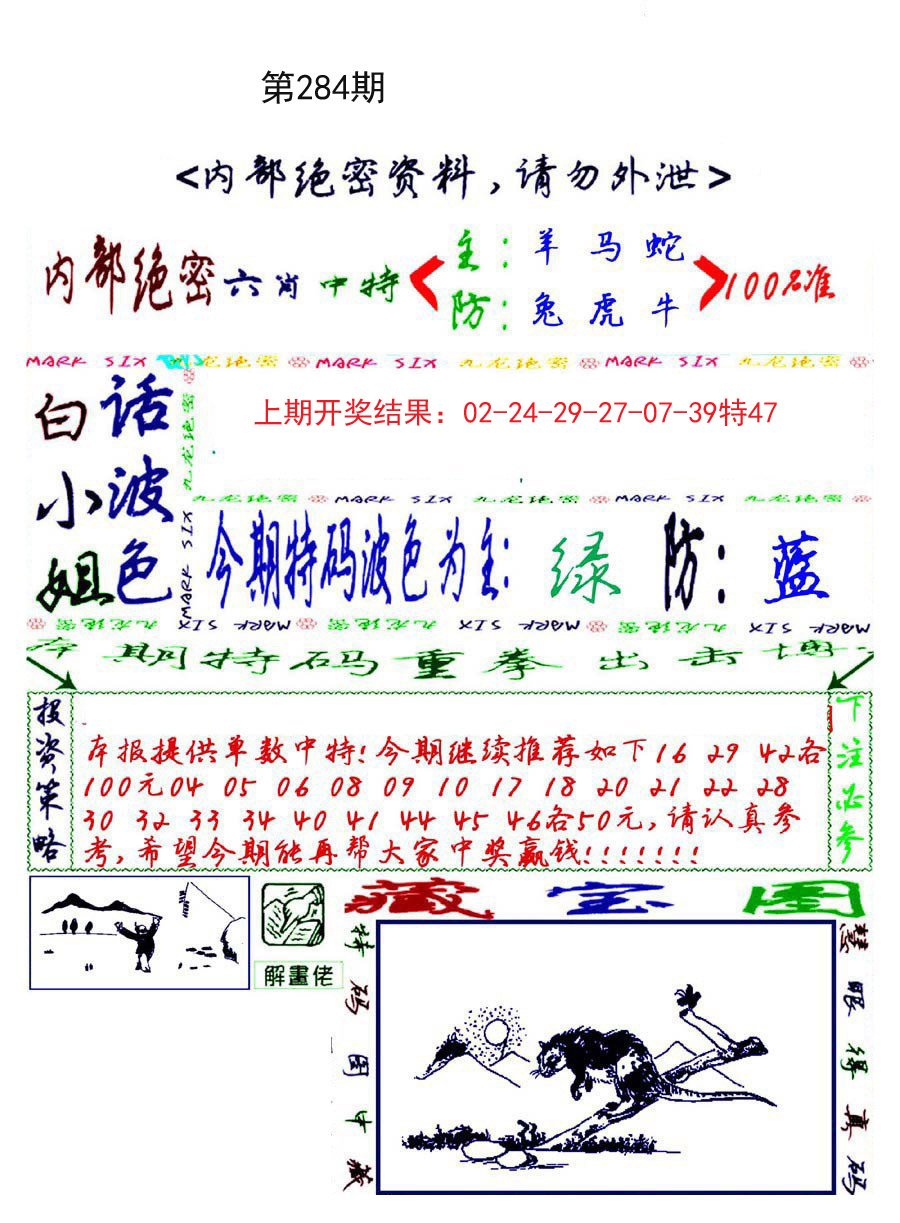 第284期
<内部绝密资料,请勿外泄>
内部绝密六肖中特
主:羊马蛇
防:兔虎牛
100%准
MARK SIX 九龙绝密 MARK SIX 九龙绝密 MARK SIX 九龙绝密
白话
小波
姐色
九龙绝密 MARK SIX
上期开奖结果：02-24-29-27-07-39特47
九龙绝密 MARK SIX 九龙绝密 MARK SIX 九龙绝密
今期特码波色为主:绿 防:蓝
九龙绝密 MARK SIX 九龙绝密 MARK SIX 九龙绝密 MARK SIX
本期特码重拳出击博
投资策略
本报提供单数中特!今期继续推荐如下16 29 42各
100元04 05 06 08 09 10 17 18 20 21 22 28
30 32 33 34 40 41 44 45 46各50元,请认真参
考,希望今期能再帮大家中奖赢钱!!!!!!!
下注必参
解畫佬
藏宝图
特码图中藏
慧眼得真码